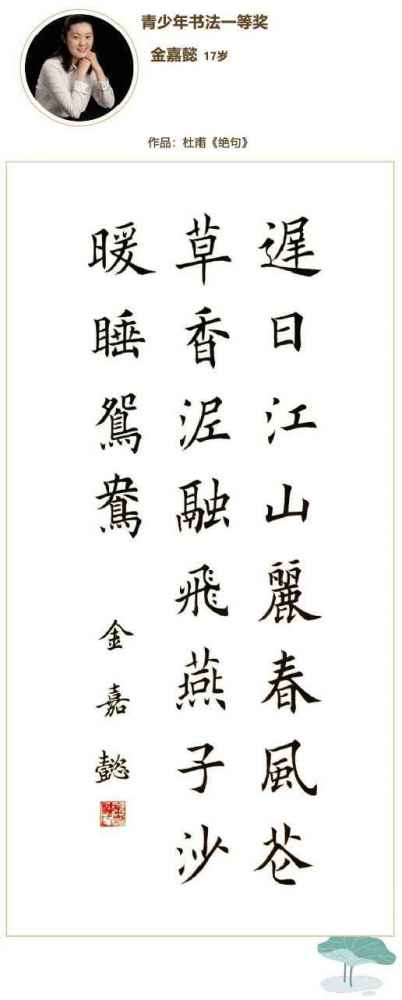 青少年书法一等奖
金嘉懿 17岁
作品：杜甫《绝句》
遲日江山麗春風花
草香泥融飛燕子沙
暖睡鴛鴦
金嘉懿